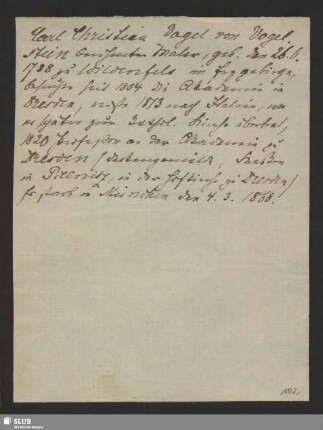 Carl Christian Vogel von Vogel-
stein berühmter Maler, geb. den 26.6.
1788 zu Wildenfels im Erzgebirge,
besuchte seit 1804 die Akademie in
Dresden, reiste 1813 nach Italien, wo
er später zur kathol. Kirche übertrat,
1820 Professor an der Akademie zu
Dresden / Deckengemälde,
in Pillnitz, in der Hofkirche zu Dresden /
Er starb in München den 4. 3. 1868.
102
SLUB